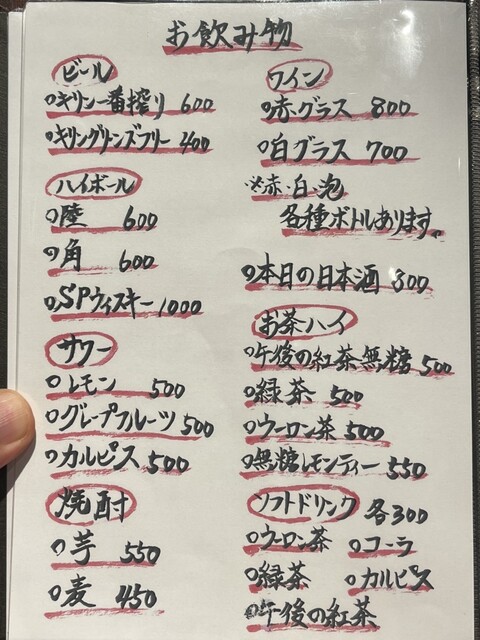 お飲み物
ビール
○キリン一番搾り 600
○キリングリーンズフリー 400
ハイボール
○陸 600
○角 600
○SPウィスキー 1000
サワー
○レモン 500
○グレープフルーツ 500
○カルピス 500
焼酎
○芋 550
○麦 450
ワイン
○赤グラス 800
○白グラス 700
※赤・白・泡
各種ボトルあります。
○本日の日本酒 800
お茶ハイ
○午後の紅茶無糖 500
○緑茶 500
○ウーロン茶 500
○無糖レモンティー 550
ソフトドリンク 各300
○ウーロン茶 ○コーラ
○緑茶 ○カルピス
○午後の紅茶